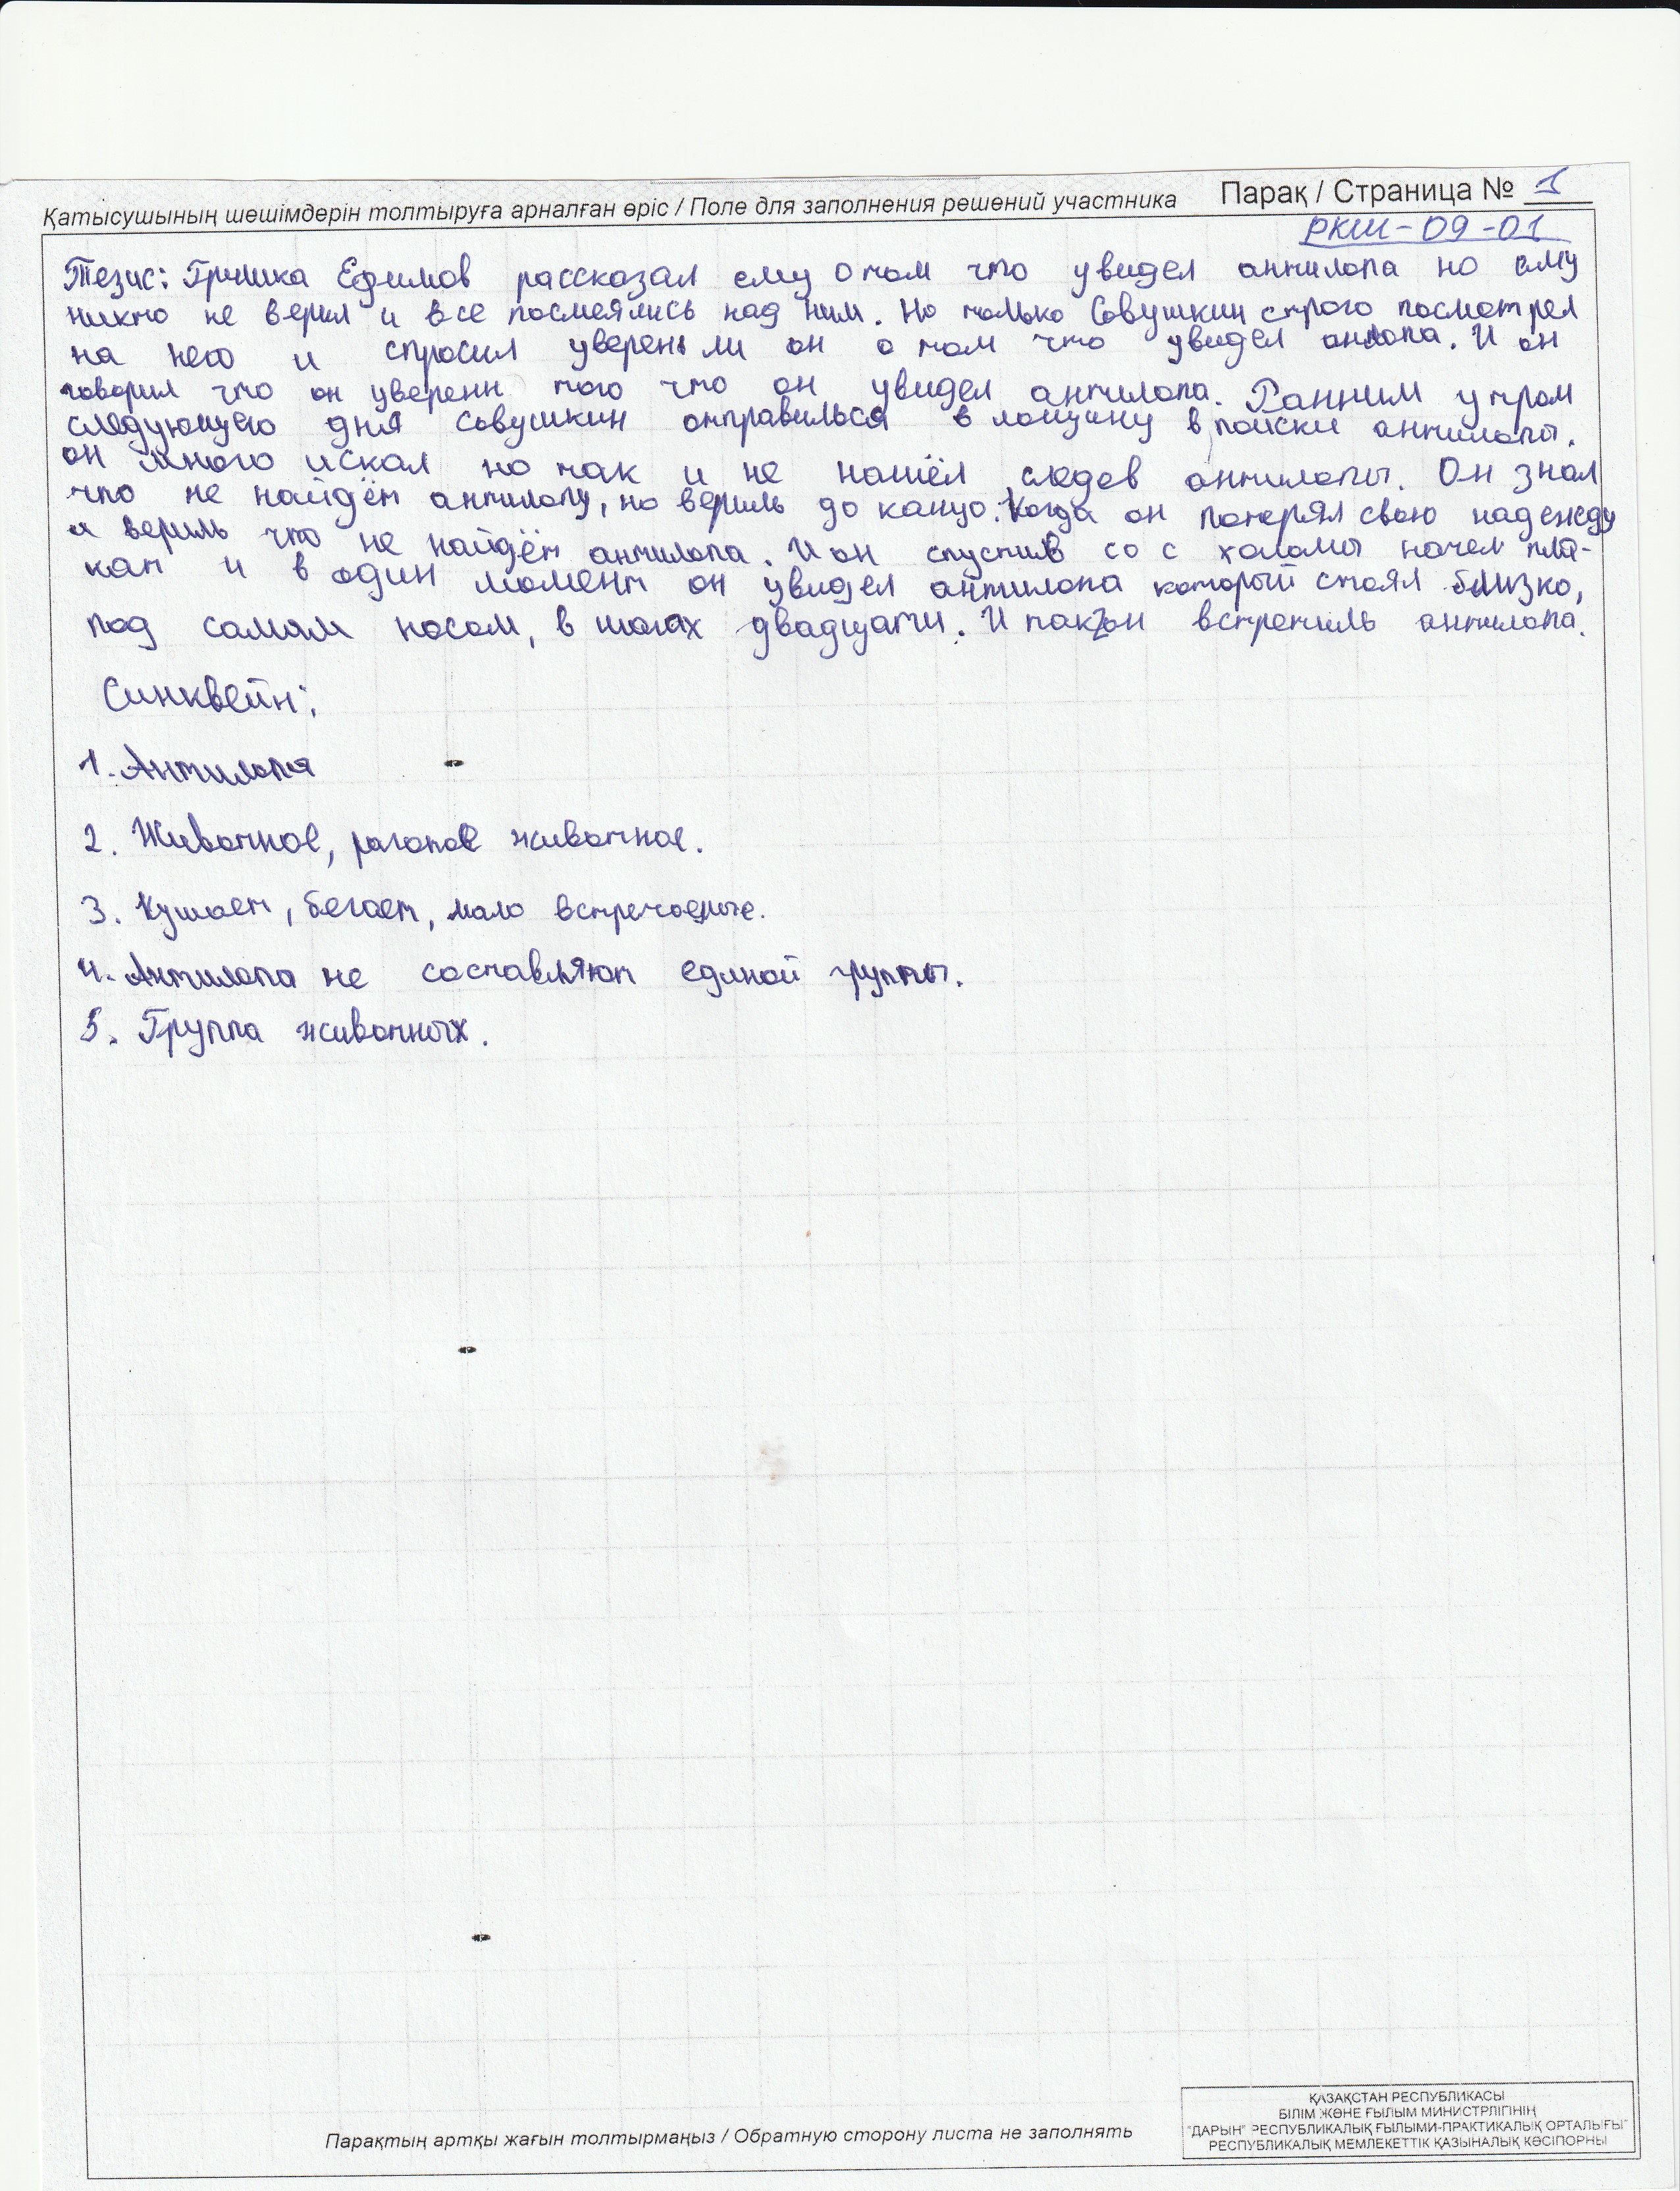 Қатысушының шешімдерін толтыруға арналған өріс / Поле для заполнения решений участника Парақ / Страница № 1
РКШ-09-01
Тезис: Гришка Ефимов рассказал ему о том что увидел антилопа но ему
никто не верил и все посмеялись над ним. Но только Совушкин строго посмотрел
на него и спросил уверень ли он о том что увидел антлопа. И он
говорил что он уверенн того что он увидел антилопа. Ранним утром
следующего дня Совушкин отправилься в лощину в поиски антилопы.
он много искал но так и не нашёл следев антилопы. Он знал
что не найдём антилопу, но вериль до канцо. Когда он потерял свою надежду
и вериль что не найдём антилопа. И он спустив со с холомы начел пла-
кат и в один момент он увидел антилопа который стоял близко,
под самом носом, в шагах двадцати. И так он встретиль антилопа.
Синквейн:
1. Антилопа
2. Живатное, рогатое живатное.
3. Кушает, бегает, мало встречаемые.
4. Антилопа не составляют единой группы.
5. Группа живатных.
Парақтың артқы жағын толтырмаңыз / Обратную сторону листа не заполнять
ҚАЗАҚСТАН РЕСПУБЛИКАСЫ
БІЛІМ ЖӘНЕ ҒЫЛЫМ МИНИСТРЛІГІНІҢ
"ДАРЫН" РЕСПУБЛИКАЛЫҚ ҒЫЛЫМИ-ПРАКТИКАЛЫҚ ОРТАЛЫҒЫ"
РЕСПУБЛИКАЛЫҚ МЕМЛЕКЕТТІК ҚАЗЫНАЛЫҚ КӘСІПОРНЫ